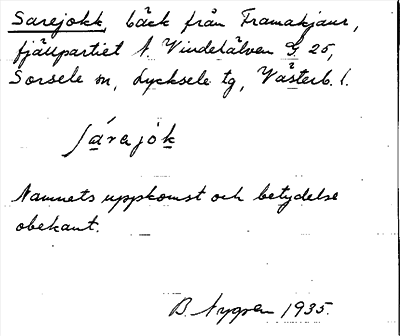 Sarejokk, bäck från Tramakjaur,
fjällpartiet N. Vindelälven G 25,
Sorsele sn, Lycksele tg, Västerb. l.
sárajòk
Namnets uppkomst och betydelse
obekant.
B. Nygren 1935.